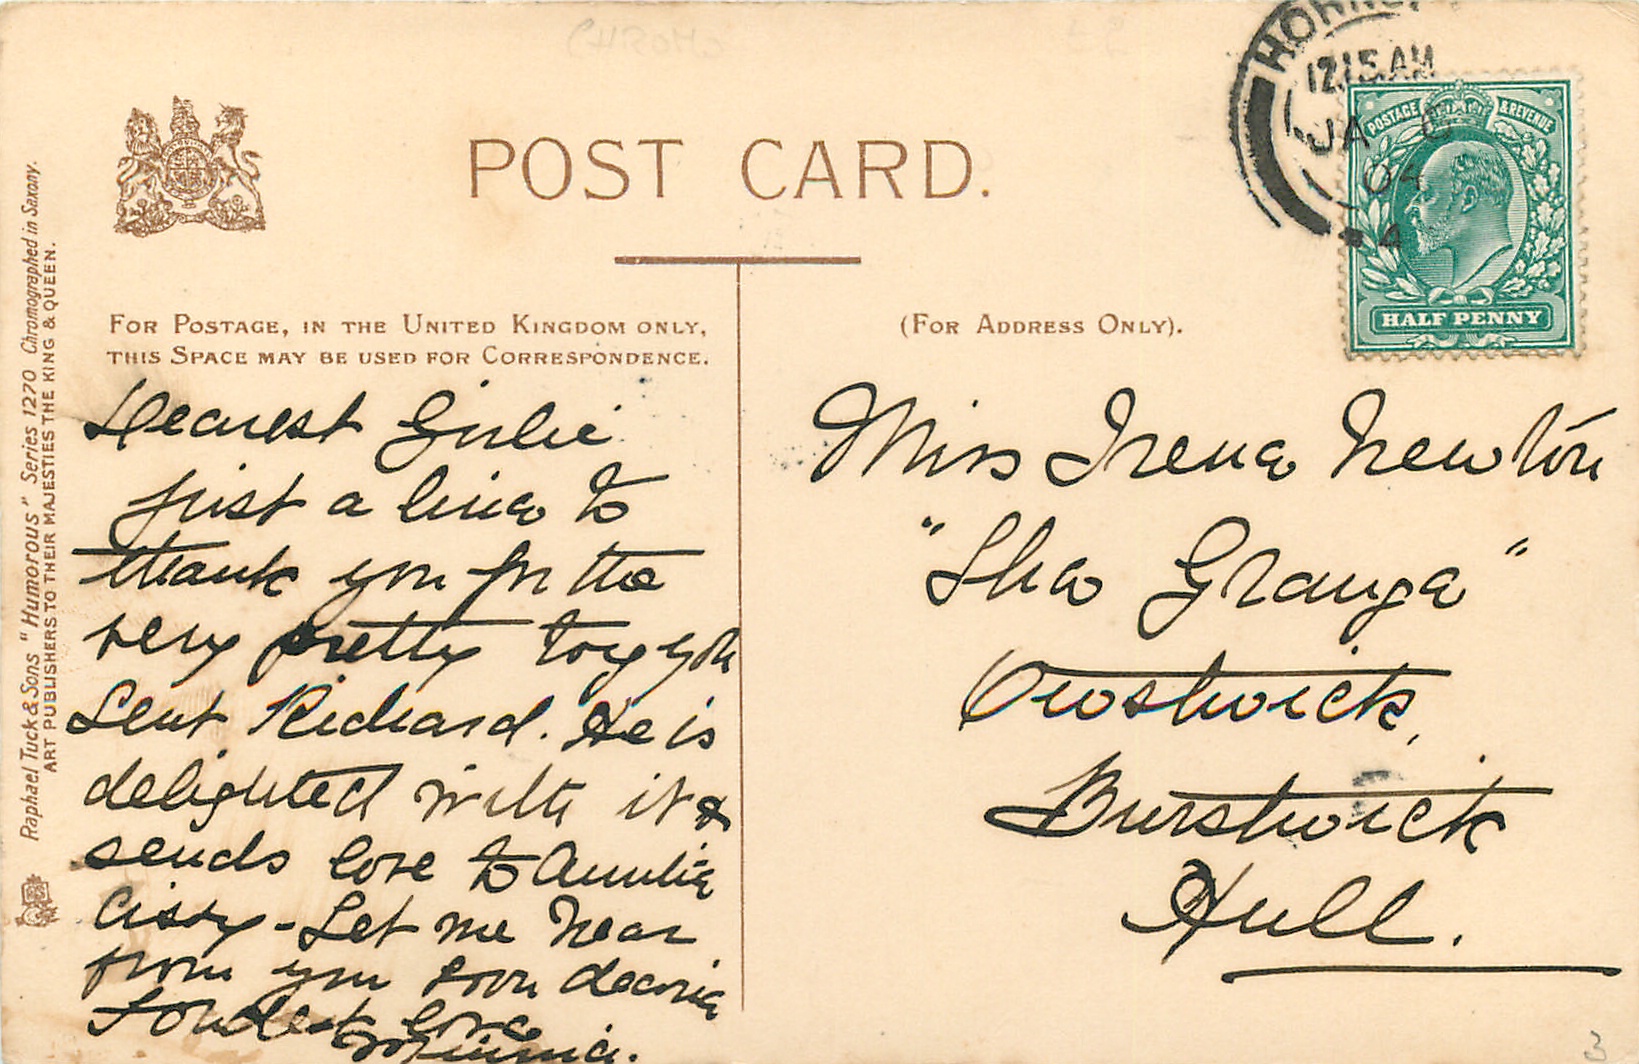 POST CARD.
FOR POSTAGE, IN THE UNITED KINGDOM ONLY,
THIS SPACE MAY BE USED FOR CORRESPONDENCE.
(FOR ADDRESS ONLY).
Dearest Girlie
just a line to
thank you for the
very pretty toy you
sent Richard. He is
delighted with it &
sends love to Auntie
Cissy - Let me hear
from you soon dearie
Fondest love
Minnie.
Miss Irene Newton
"The Grange"
Owstwick,
Burstwick
Hull.
12.15 AM
JA
04
4
POSTAGE & REVENUE
HALF PENNY
Raphael Tuck & Sons "Humorous" Series 1270 Chromographed in Saxony.
ART PUBLISHERS TO THEIR MAJESTIES THE KING & QUEEN.
3